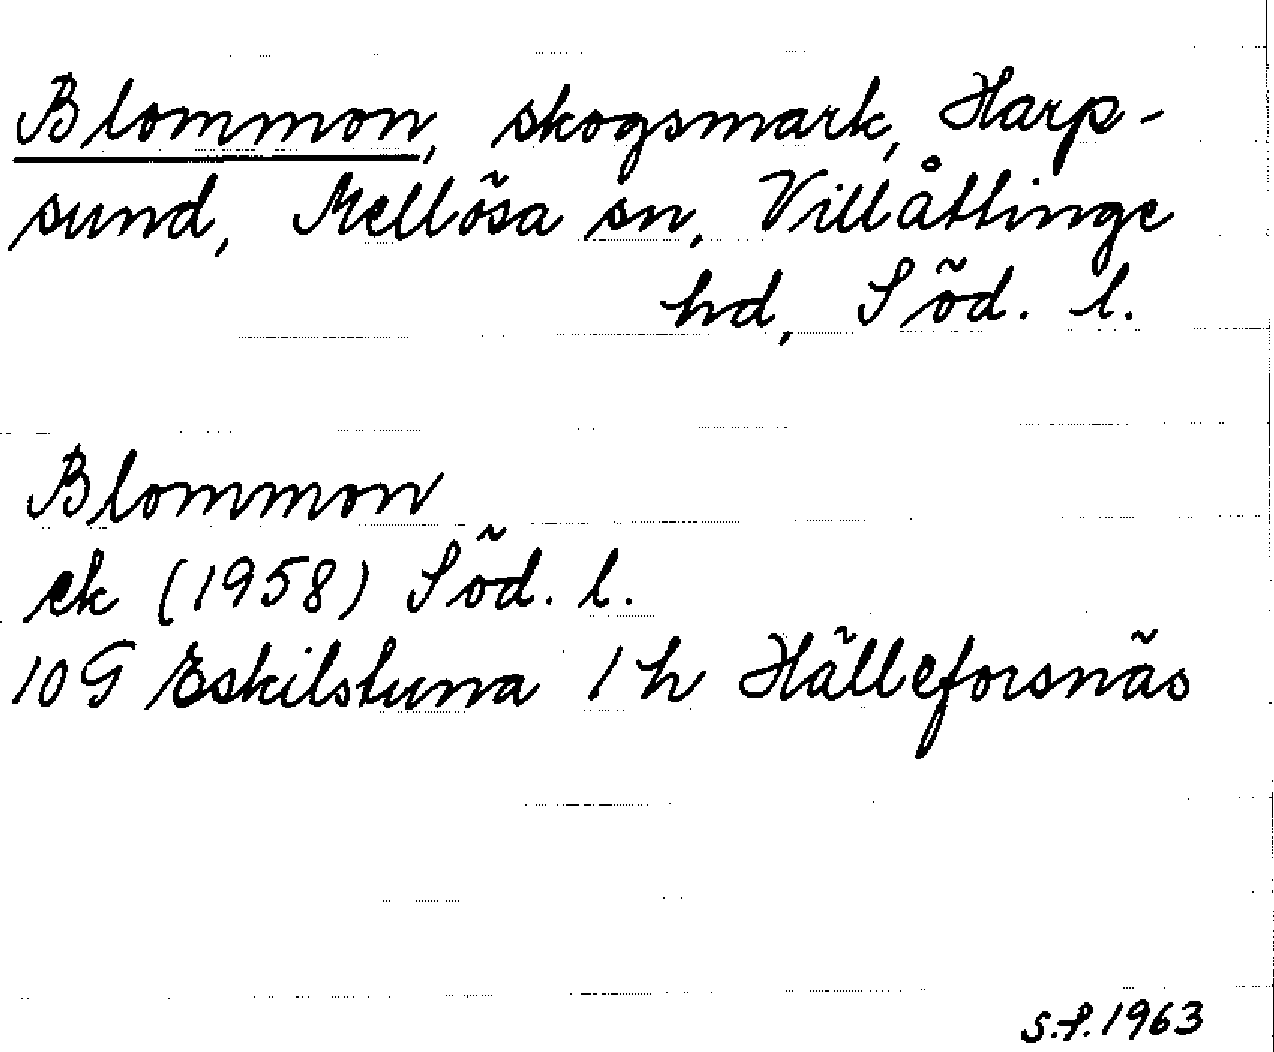 Blommon, skogsmark, Harp-
sund, Mellösa sn, Villåttinge
hd, Söd. l.
Blommon
ek (1958) Söd. l.
10 G Eskilstuna 1 h Hälleforsnäs
S.F. 1963